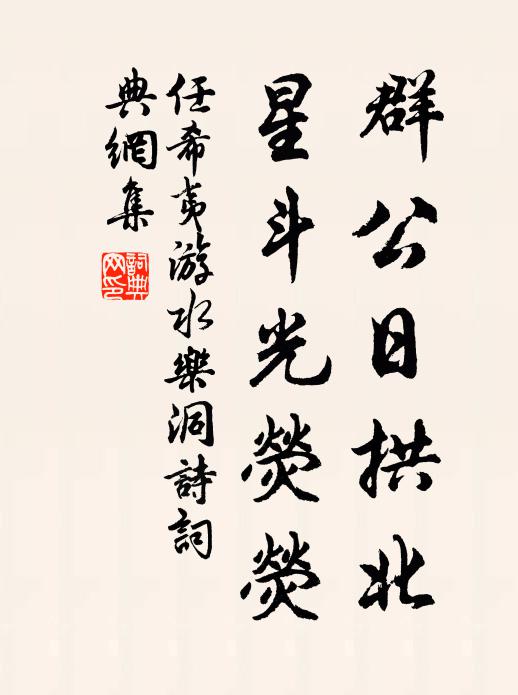 群公日拱北
星斗光熒熒
任希夷游水樂洞詩詞
典網集
詞典
网印